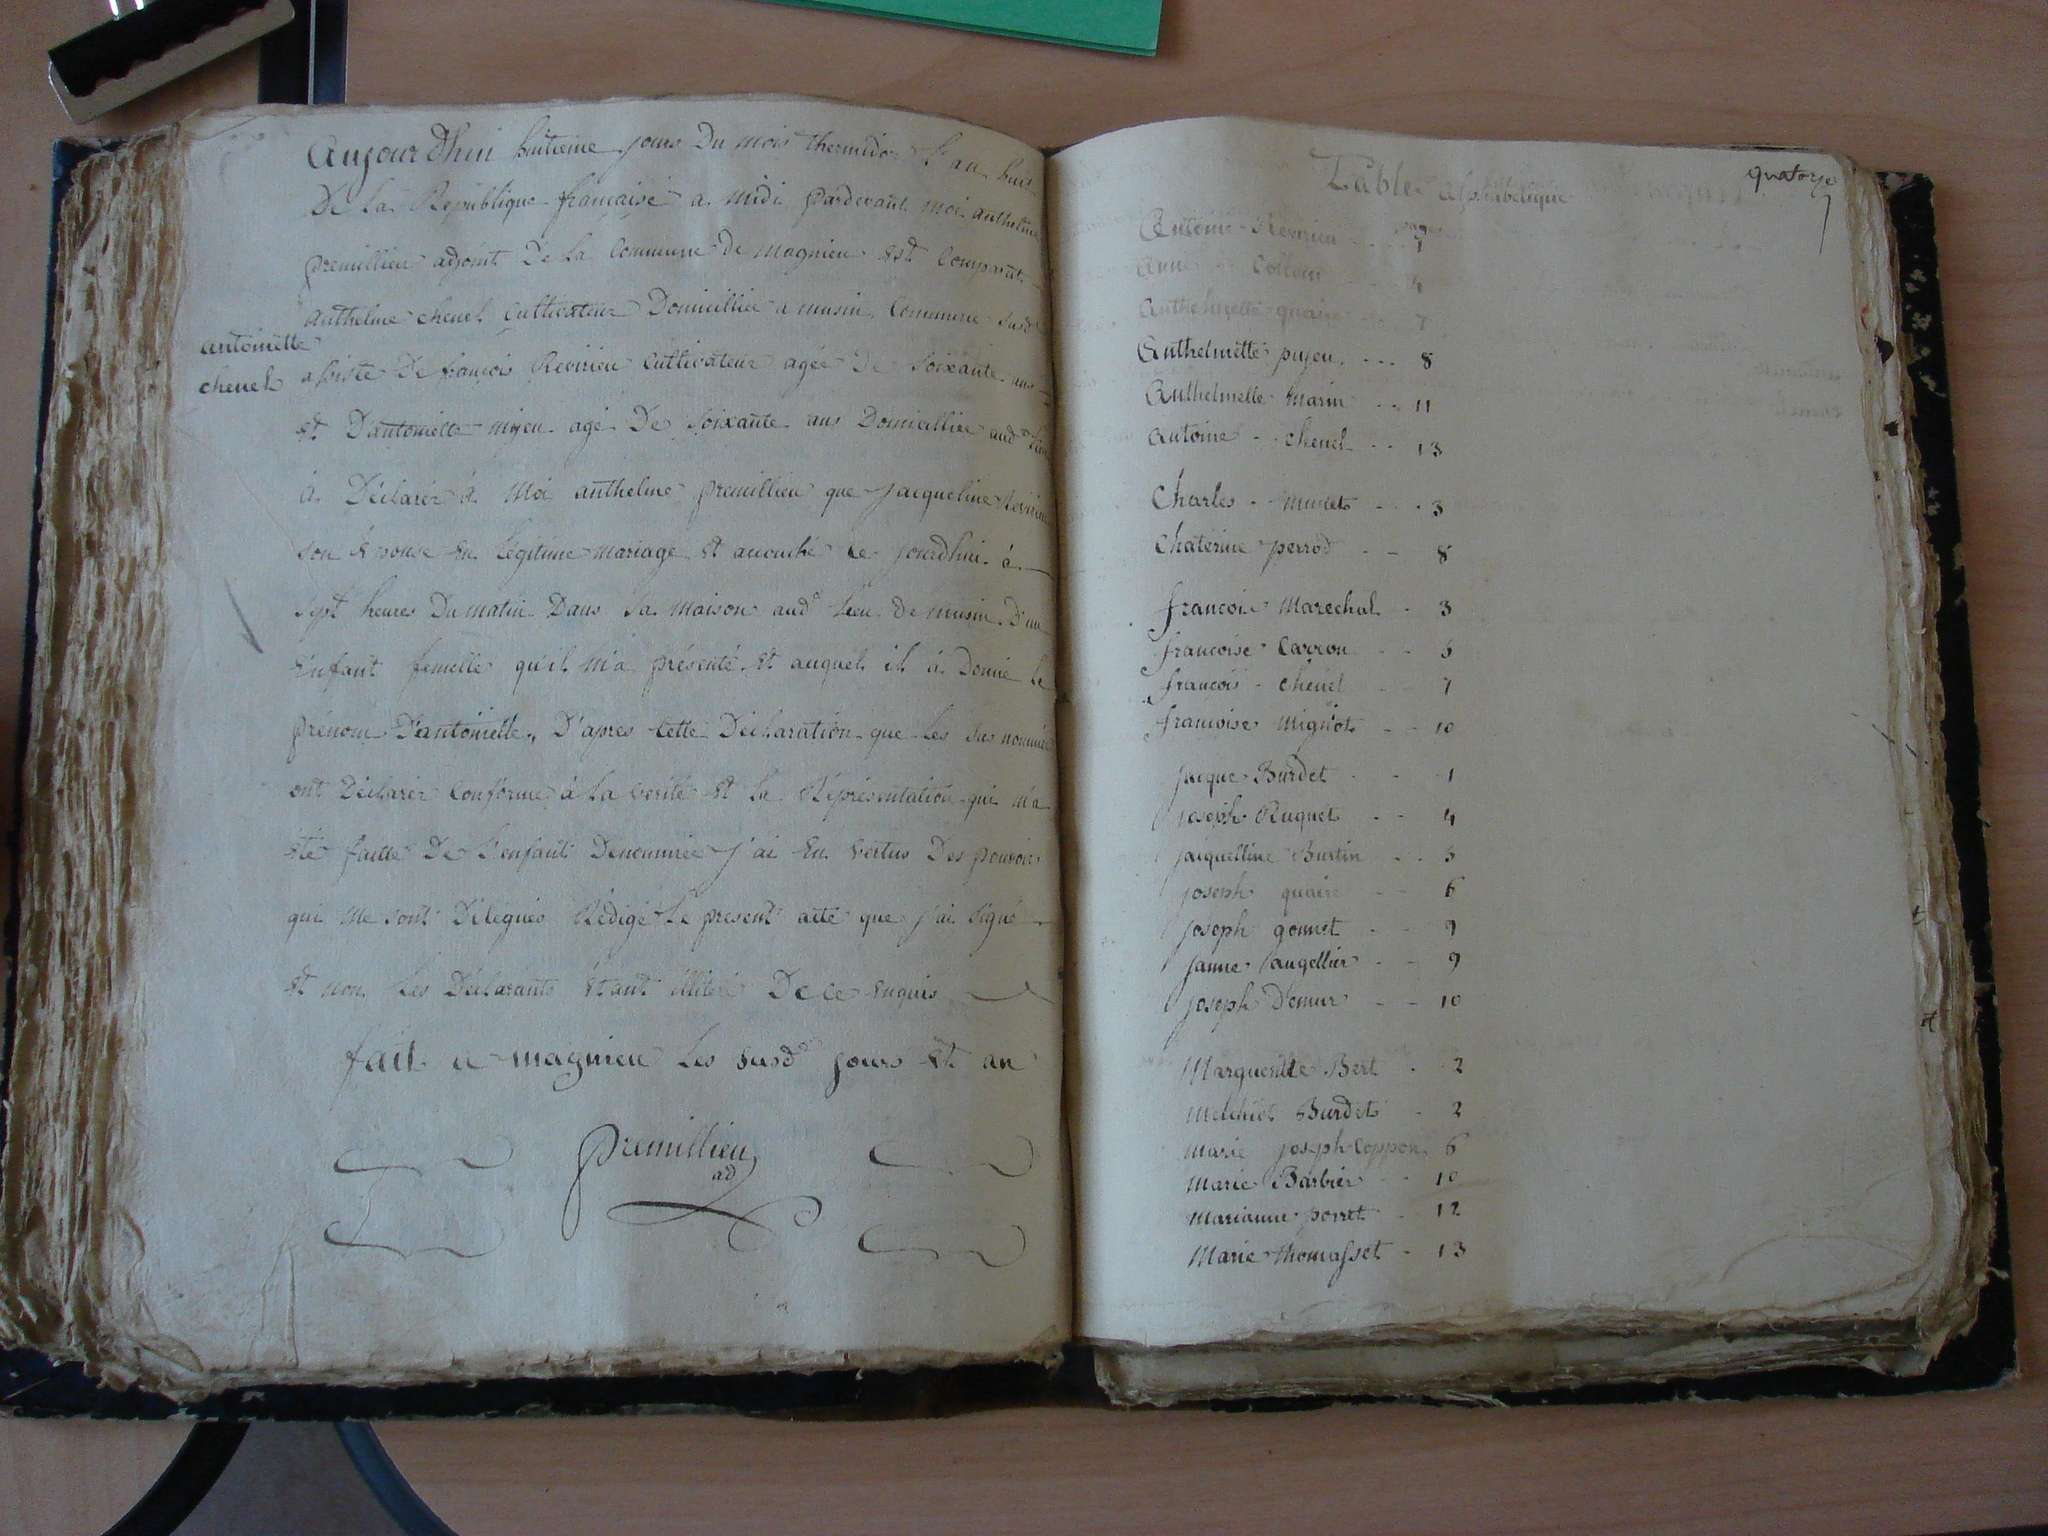 Aujourdhui huitieme jours Du mois thermidor l'an huit
De la République française a midi pardevant moi anthelme
premillieu adjoint De la Commune De magnieu est Comparut
anthelme chenel Cultivateur Domicilliée a musin Commune susd
antoinette
chenel
assisté De françois Revirieu Cultivateur agée De soixante ans
et D'antoinette mijeu agé De soixante ans Domicilliée aud lieu
à Déclarér à Moi anthelme premillieu que jacqueline Revirieu
son épouse En Légitime mariage Et accouché ce jourdhui à
sept heures Du matin Dans sa maison aud lieu De musin D'un
Enfant femelle qu'il m'a présenté Et auquel il à Donné le
prénom D'antoinette, D'apres Cette Déclaration que les sus nommés
ont Déclarér Conforme à la vérité Et la Représentation qui m'a
été faitte De l'enfant Dénommée j'ai En vertus Des pouvoirs
qui me sont Délégués Rédigé Le présent acte que j'ai signé
Et non Les Déclarants Etant illitéré De ce Enquis
fait a magnieu les susd jours Et an
premillieu
ad
quatorze
Table alphabetique
Antoine Revirieu 1
Anne Collom 4
Anthelmette quaire 7
Anthelmette pujeu 8
Anthelmette marin 11
Antoine chenel 13
Charles munet 3
Chaterine perrod 8
françois Marechal 3
francoise Carron 5
francois chenel 7
françoise mignot 10
jacque Burdet 1
joseph Ruquet 4
jacquelline Burtin 5
joseph quaire 6
joseph gonnet 9
janne augellier 9
joseph Demur 10
Marguerittte Bert 2
Melchiot Burdet 2
marie joseph Coppon 6
marie Barbier 10
marianne porret 12
Marie thomasset 13